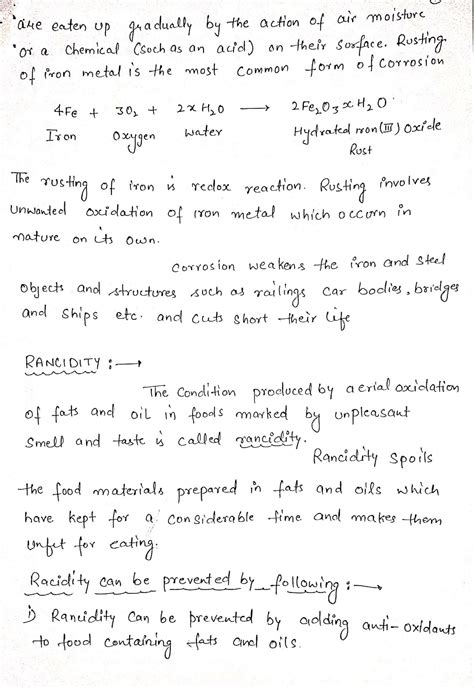 are eaten up gradually by the action of air moisture
or a chemical (such as an acid) on their surface. Rusting
of iron metal is the most common form of corrosion
4Fe + 3O₂ + 2xH₂O → 2Fe₂O₃xH₂O
Iron Oxygen water Hydrated iron (III) Oxicle
Rust
The rusting of iron is redox reaction. Rusting involves
unwanted oxidation of iron metal which occurn in
nature on its own.
Corrosion weakens the iron and steel
objects and structures such as railings car bodies, bridges
and ships etc. and cuts short their life
RANCIDITY :→
The condition produced by aerial oxidation
of fats and oil in foods marked by unpleasant
smell and taste is called rancidity.
Rancidity Spoils
the food materials prepared in fats and oils which
have kept for a considerable time and makes them
unfit for eating.
Racidity can be prevented by following :→
i) Rancidity can be prevented by adding anti-oxidants
to food containing fats and oils.